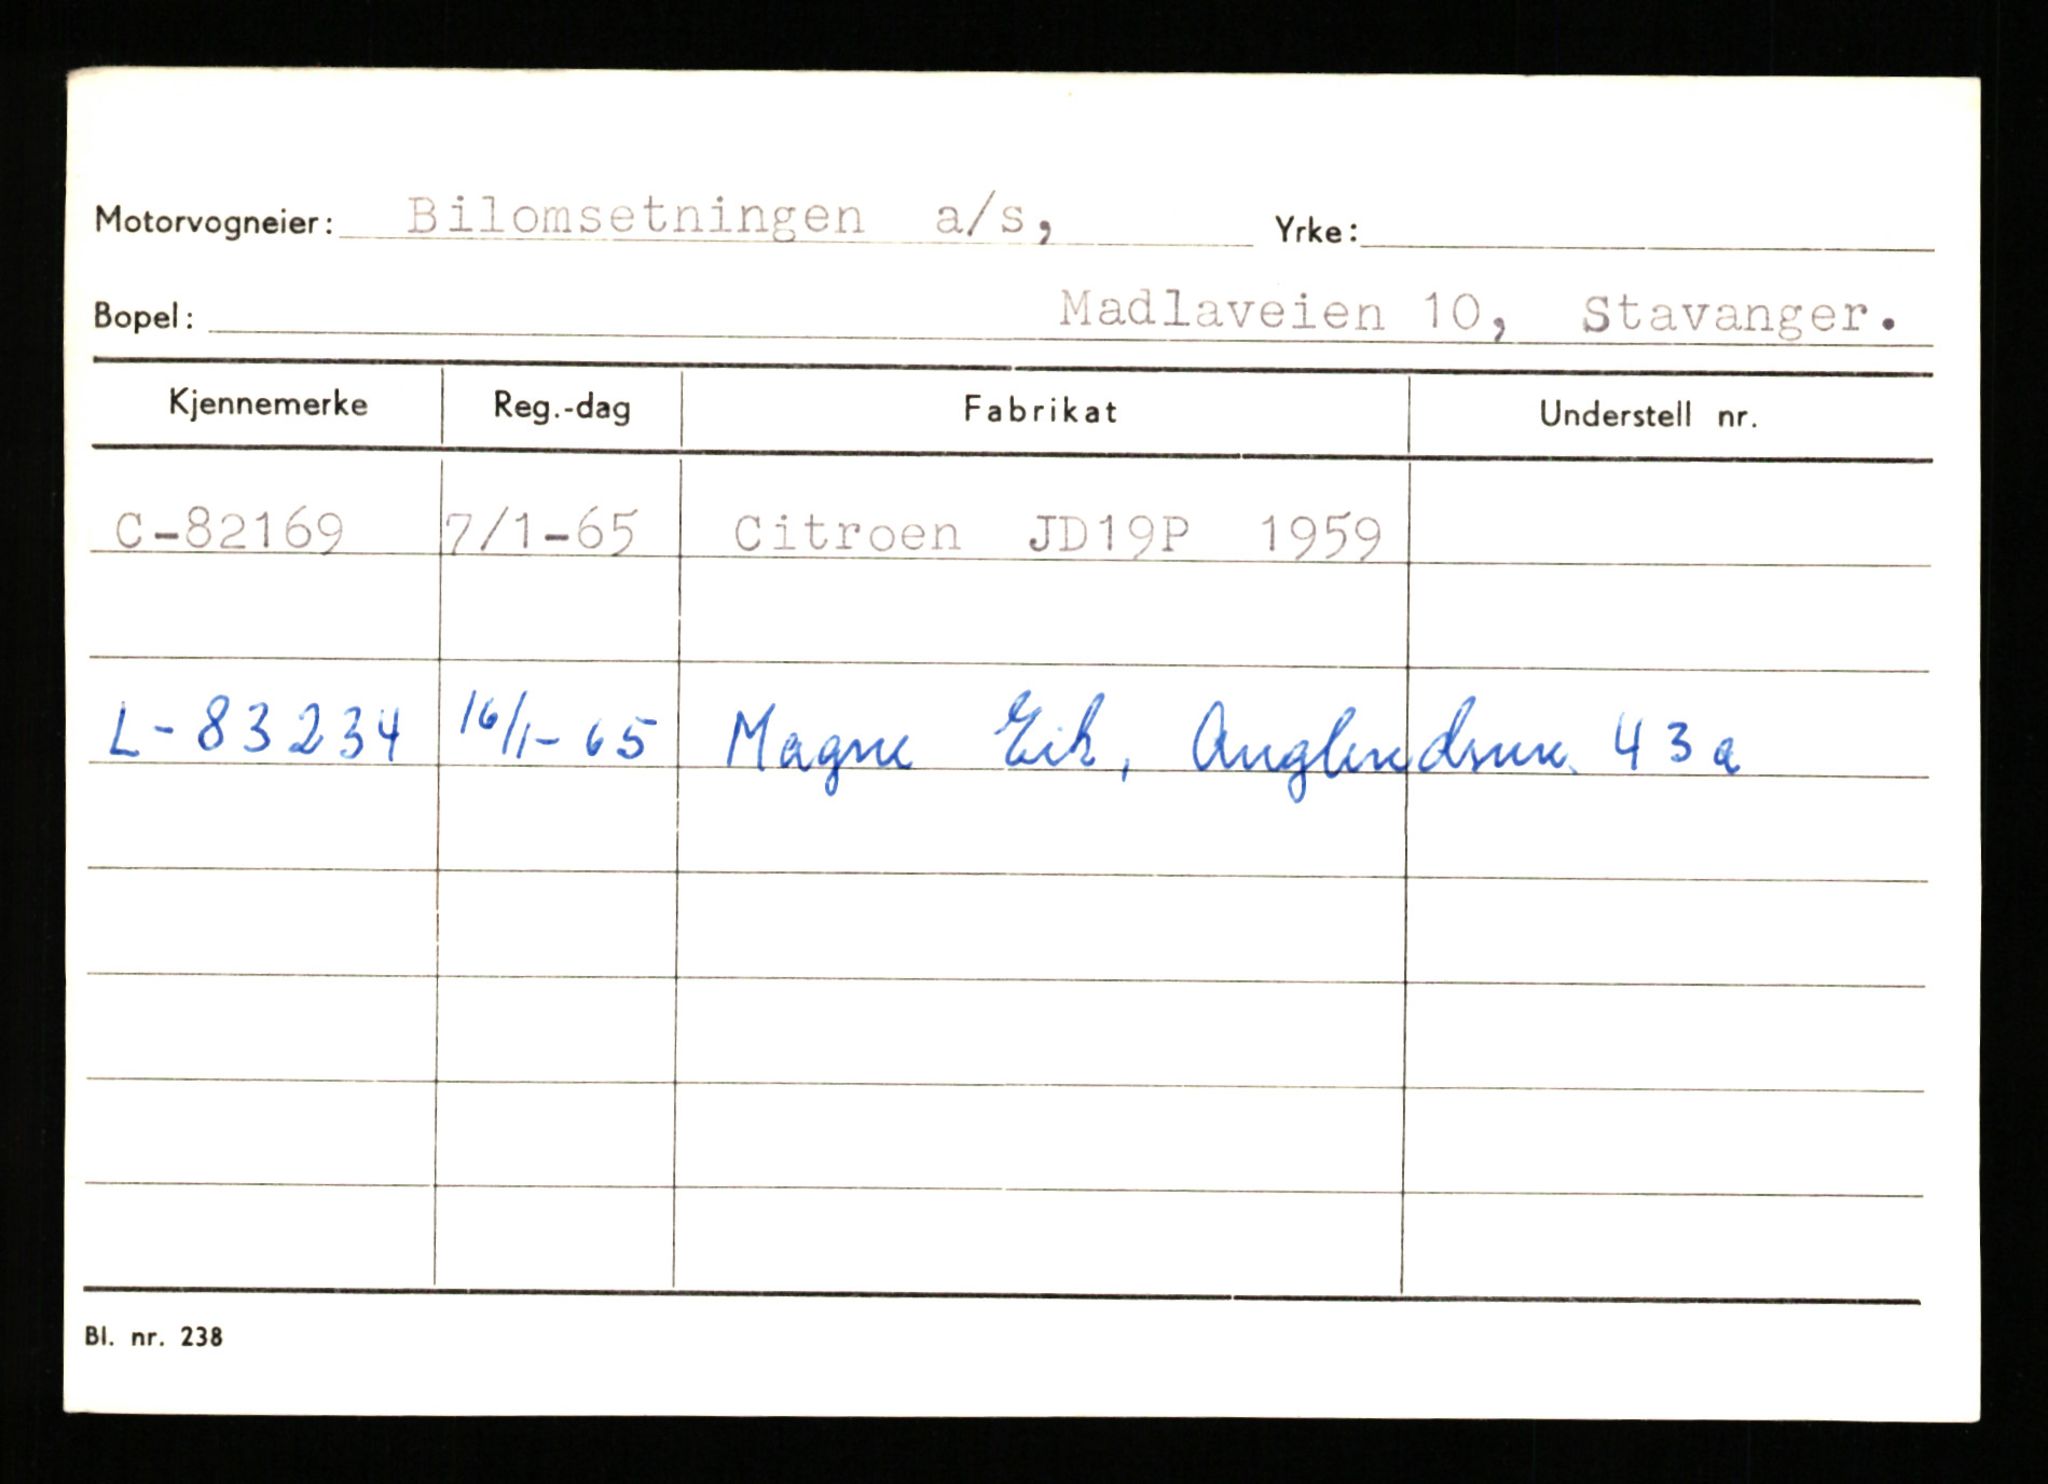 Motorvogneier: Bilomsetningen a/s, Yrke:
Bopel: Madlaveien 10, Stavanger.
Kjennemerke Reg.-dag Fabrikat Understell nr.
C-82169 7/1-65 Citroen JD19P 1959
L-83234 16/1-65 Magne Eik, 43a
Bl. nr. 238